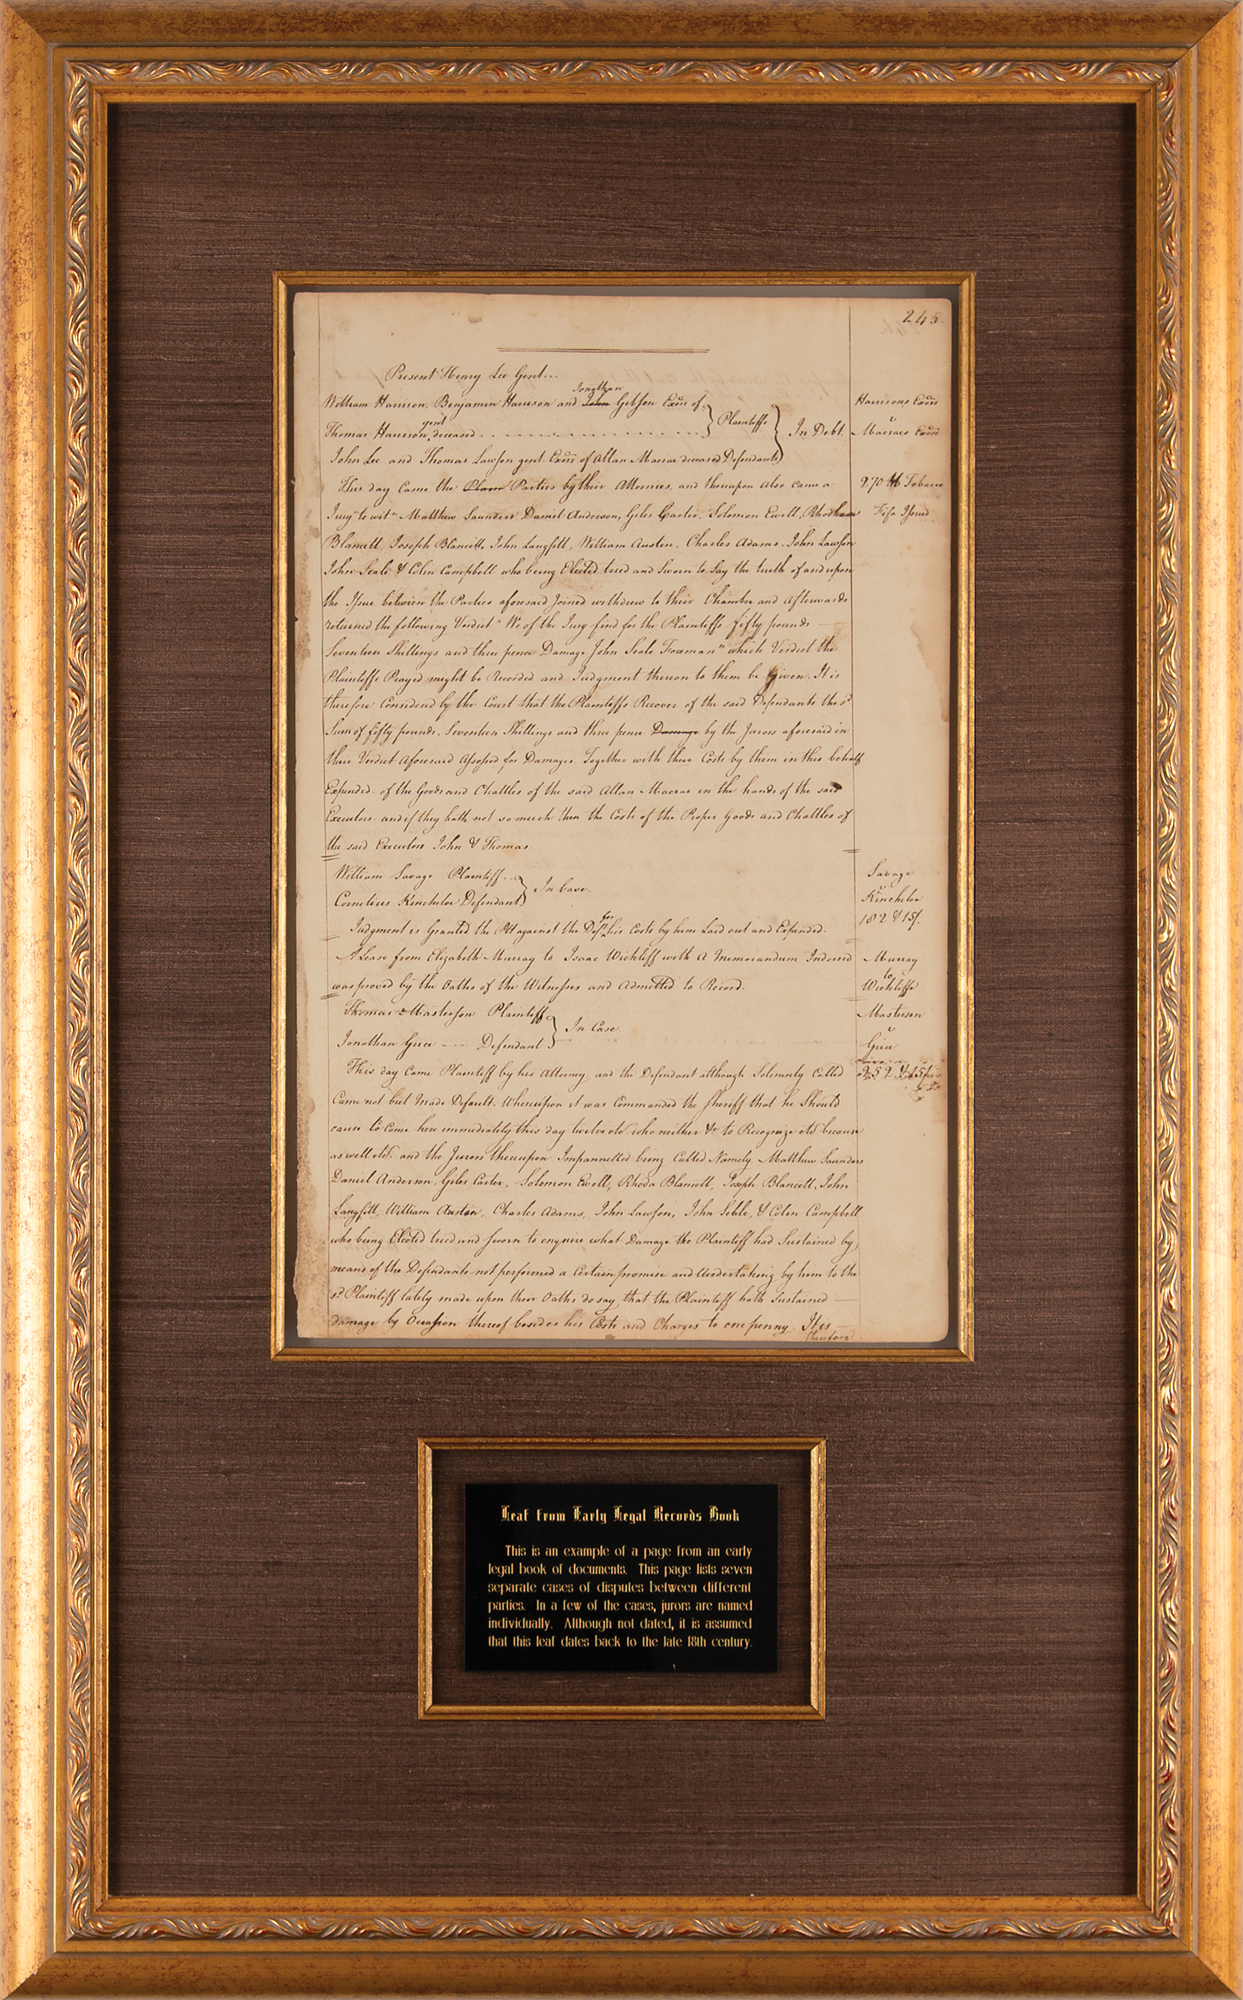 245
Present Henry Lee Gent...
William Harrison, Benjamin Harrison and Jonathan John Gibson Exrs of
Thomas Harrison gent deceased
Plaintiffs
In Debt
John Lee and Thomas Lawson gent Exrs of Allan Macrae deceased Defendants
Harrisons Exrs
v
Macraes Exrs
This day Came the Parties by their Attornies, and thereupon also came a
270 lb Tobacco
Jury "to wit" Matthew Saunders Daniel Anderson, Giles Carter, Solomon Ewell, Rhodham
Fifa Issued
Blancett, Joseph Blancett, John Langfitt, William Austin, Charles Adams, John Lawson
John Seale & Colin Campbell who being Elected tried and Sworn to Say the truth of and upon
the Issue between the Parties aforesaid Joined withdrew to their Chamber and afterwards
returned the following Verdict "We of the Jury find for the Plaintiffs fifty pounds
Seventeen Shillings and three pence Damage John Seale Foreman" which Verdict the
Plaintiffs Prayed might be Recorded and Judgment thereon to them be Given. It is
therefore Considered by the Court that the Plaintiffs Recover of the said Defendants the sd
Sum of fifty pounds, Seventeen Shillings and three pence Damage by the Jurors aforesaid in
their Verdict Aforesaid Assessed for Damages, Together with their Costs by them in this behalf
Expended of the Goods and Chattles of the said Allan Macrae in the hands of the said
Executors and if they hath not so much then the Costs of the Proper Goods and Chattles of
the said Executors John & Thomas.
William Savage Plaintiff
Cornelius Kincheloe Defendant
In Case.
Savage
v
Kincheloe
182 & 15/.
Judgment is Granted the Plt against the Deft for his Costs by him Laid out and Expended.
A Lease from Elizabeth Murray to Isaac Wickliff with a Memorandum Indorsed
was proved by the Oaths of the Witnesses and Admitted to Record.
Murray
to
Wickliffe
Thomas Masterson Plaintiff
Jonathan Grice Defendant
In Case
Masterson
v
This day Came Plaintiff by his Attorney and the Defendant although Solemnly Called
252 & 15/
Came not but Made Default. Whereupon it was Commanded the Sheriff that he Should
cause to Come here immediately this day twelve &c who neither &c to Recognize &c because
as well &c and the Jurors thereupon Impannelled being Called Namely Matthew Saunders
Daniel Anderson, Giles Carter, Solomon Ewell, Rhoda Blancett, Joseph Blancett, John
Langfitt, William Austin, Charles Adams, John Lawson, John Seale, & Colin Campbell
who being Elected tried and Sworn to enquire what Damage the Plaintiff had Sustained by
means of the Defendants not performed a Certain promise and Undertaking by him to the
sd Plaintiff lately made upon their Oaths do say that the Plaintiff hath Sustained
damage by Occasion thereof besides his Costs and Charges to one penny It is
therefore
Leaf from Early Legal Records Book
This is an example of a page from an early
legal book of documents. This page lists seven
separate cases of disputes between different
parties. In a few of the cases, jurors are named
individually. Although not dated, it is assumed
that this leaf dates back to the late 18th century.